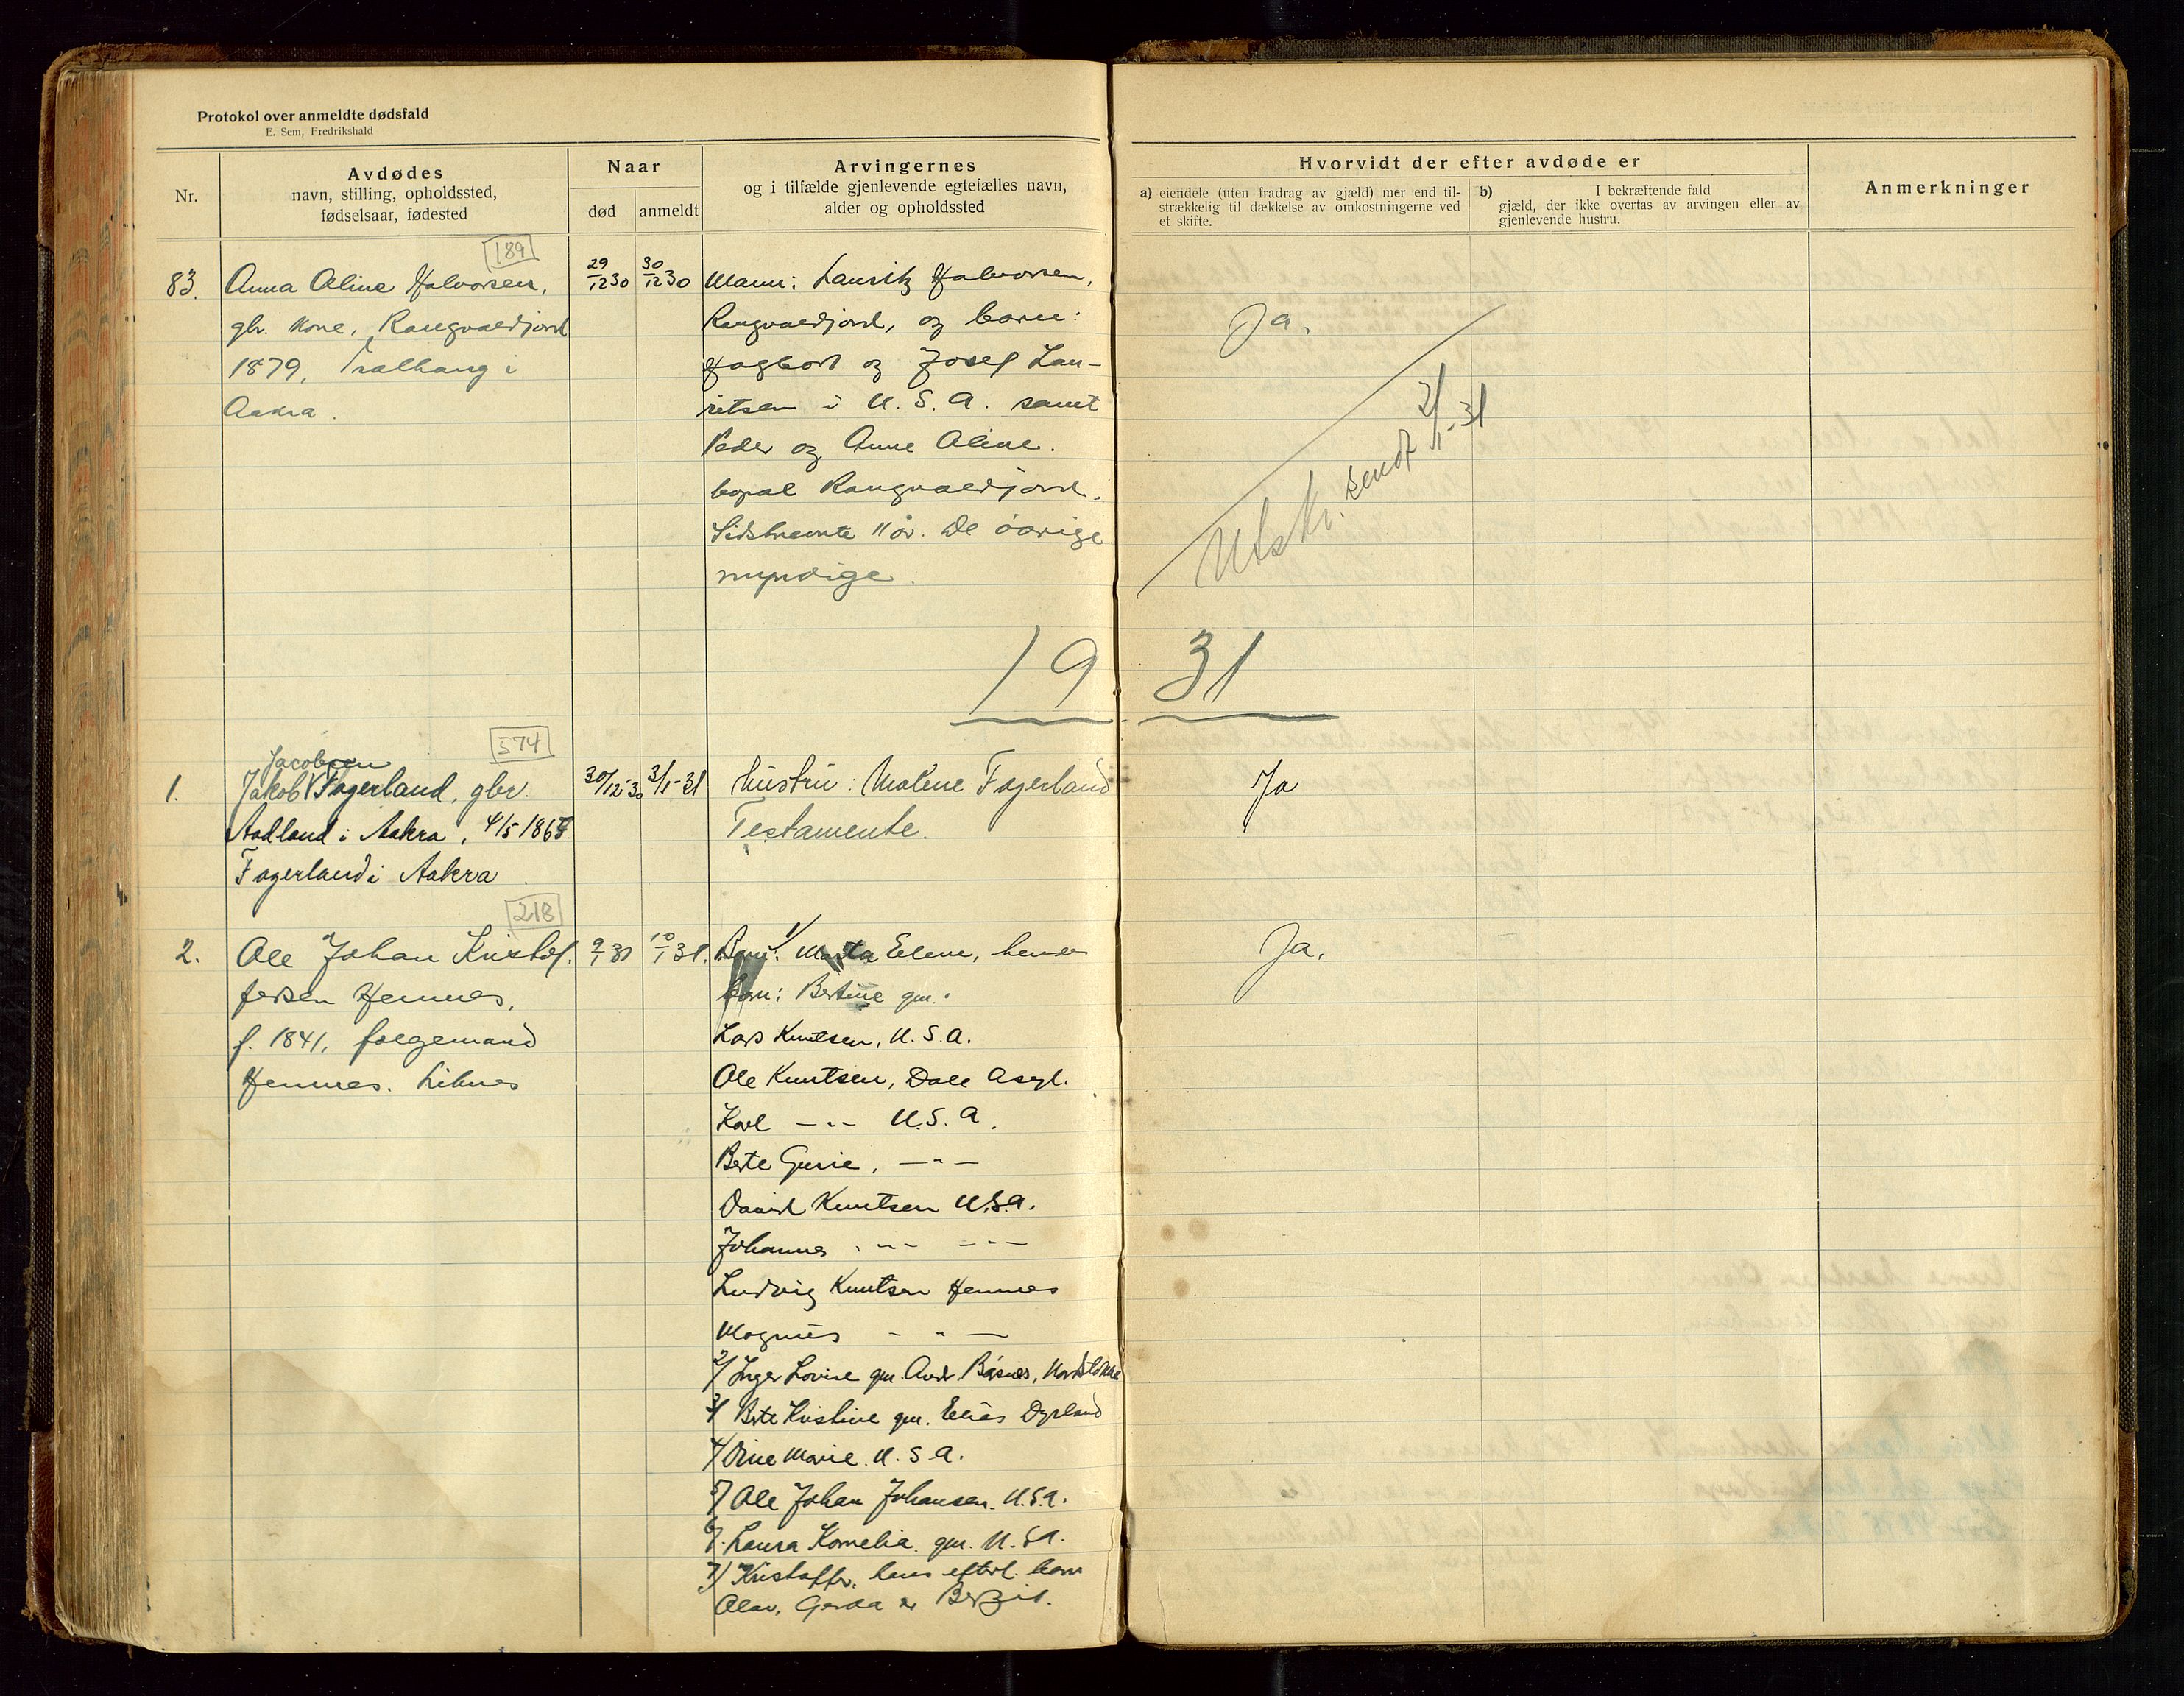 Protokol over anmeldte dødsfald
E. Sem, Fredrikshald
Nr.
Avdødes
navn, stilling, opholdssted,
fødselsaar, fødested
Naar
død
anmeldt
Arvingernes
og i tilfælde gjenlevende egtefælles navn,
alder og opholdssted
Hvorvidt der efter avdøde er
a) eiendele (uten fradrag av gjæld) mer end til-
strækkelig til dækkelse av omkostningerne ved
et skifte.
b) I bekræftende fald
gjæld, der ikke overtas av arvingen eller av
gjenlevende hustru.
Anmerkninger
189
83.
Anna Aline Halvorsen,
gbr. kone, Rangvaldjord
1879, Trælhaug i
Aakra.
29/12 30
30/12 30
Mann: Lauritz Halvorsen,
Rangvaldjord, og barn:
Hagbart og Josef Lau-
ritsen i U.S.A. samt
Peder og Anne Aline.
bopæl Rangvaldjord.
Sidstnevnte 11 år. De øvrige
myndige.
Ja.
Utskr. sendt 2/1-31
19 31
574
1.
Jacobsen
Jakob Fagerland, gbr.
Aadland i Aakra, 4/5 1868
Fagerland i Aakra
30/12-30
3/1-31
Hustru: Malene Fagerland
Testamente.
Ja
218
2.
Ole Johan Kristof-
fersen Hemnes,
f. 1841, følgemand
Hemnes. Liknes
9/1 31
10/1 31.
Barn: 1/ Marta Elene, hendes
barn: Bertine gm.
Lars Knutsen, U.S.A.
Ole Knutsen, Dale Aagl.
Karl —"— U.S.A.
Berte Gurie, —"—
David Knutsen U.S.A.
Johannes —"— —"—
Ludvig Knutsen Hemnes
Magnus — " —
2/ Inger Lovise gm. Andr. Båsnes, Nordstokke
3/ Berte Kristine gm. Elias Dyrland
4/ Oline Marie. U.S.A.
5/ Ole Johan Johansen. U.S.A.
6/. Laura Kornelia. gm. U.S.A.
7/ Kristoffer, hans efterl. barn
Olav, Gerda og Bergit.
Ja.